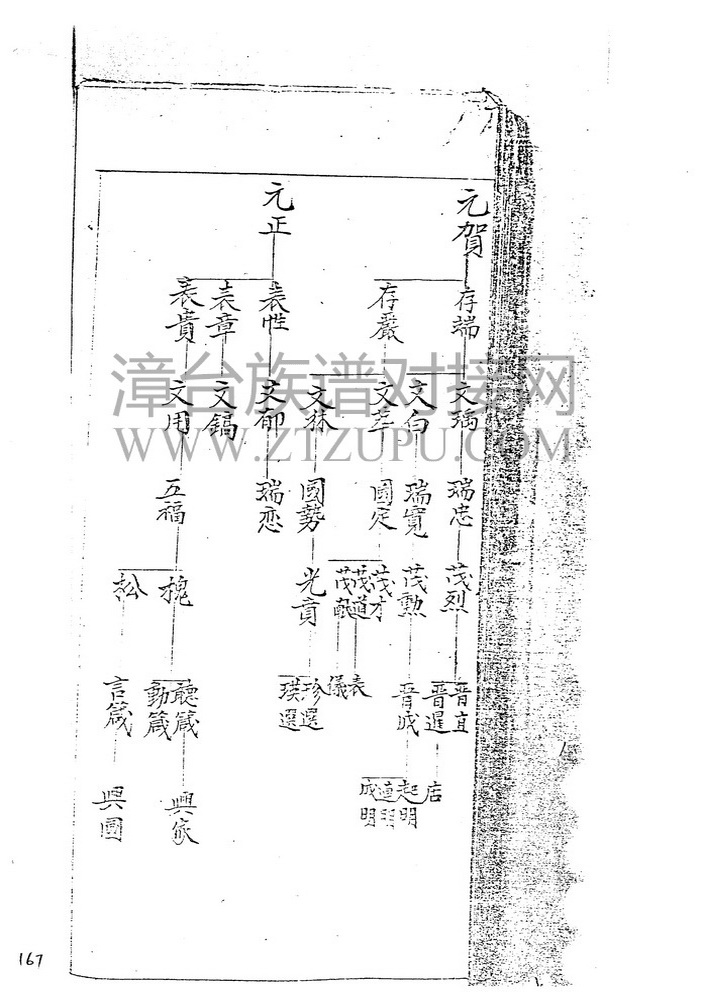 元賀
元正
存端
存嚴
表性
表章
表貴
文瑀
文白
文萃
文秣
文郁
文鎬
文用
瑞忠
瑞寬
國定
國勢
瑞恋
五福
茂烈
茂勲
茂才
茂道
光貢
槐
松
晋直
晋暹
晋成
表
儀
珍選
瑛選
聽箴
動箴
言箴
店
起明
成明
興家
興國
漳台族谱对接网
WWW.ZTZUPU.COM
167